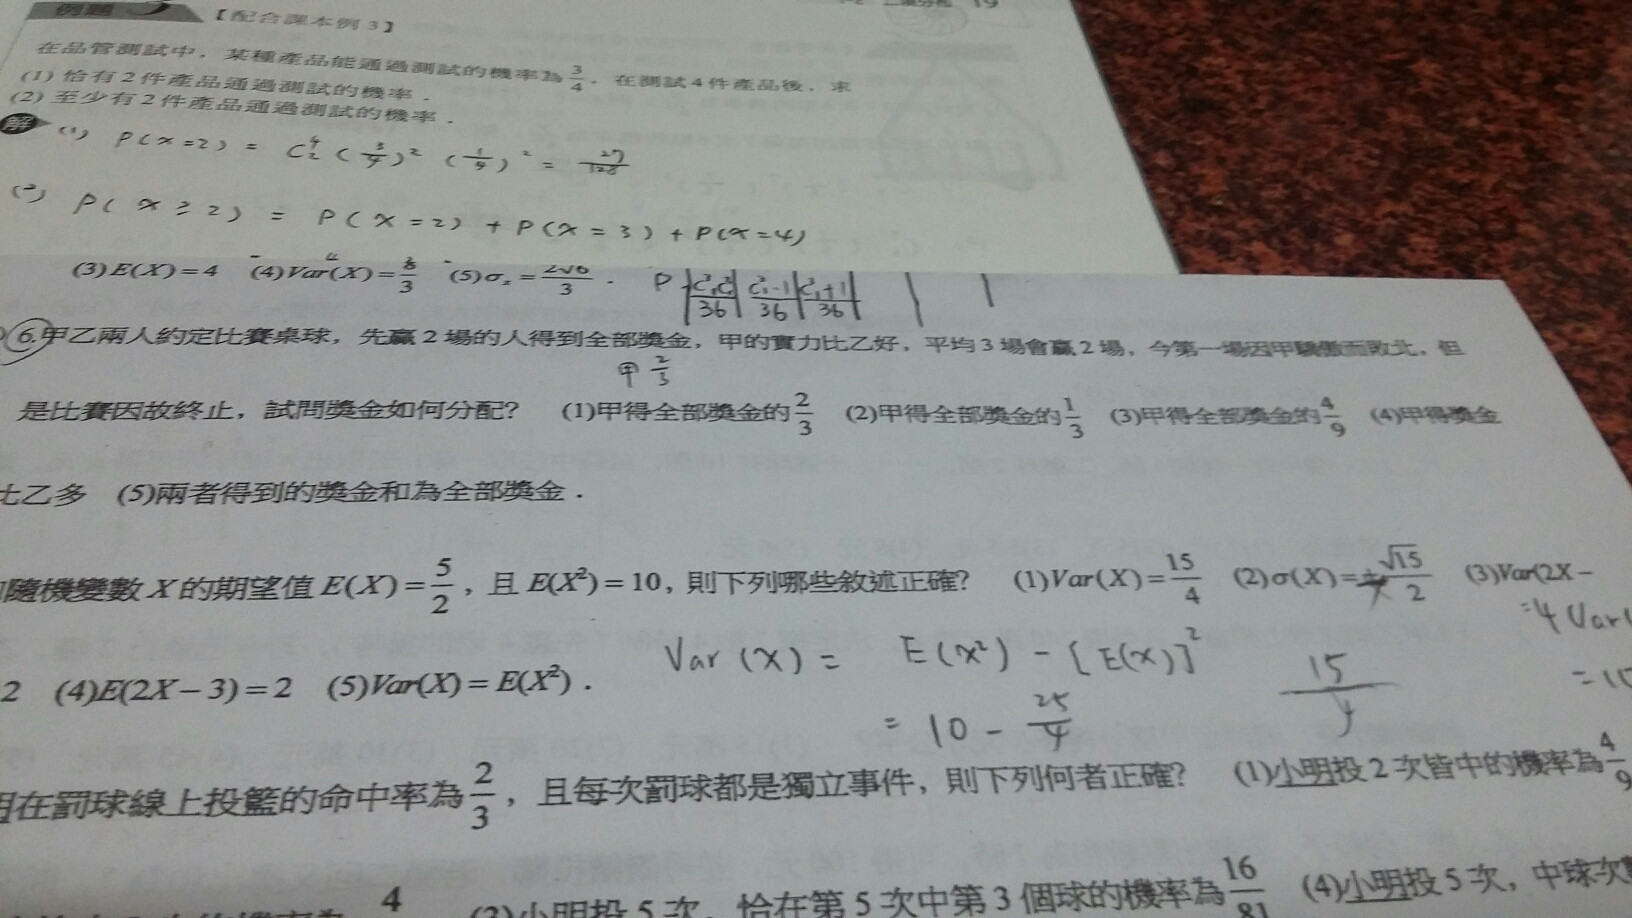 例題 3 【配合課本例 3】
在品管測試中，某種產品能通過測試的機率為 3/4．在測試 4 件產品後，求
(1) 恰有 2 件產品通過測試的機率．
(2) 至少有 2 件產品通過測試的機率．
解 (1) P(x=2) = C⁴₂ (3/4)² (1/4)² = 27/128
(2) P(x≥2) = P(x=2) + P(x=3) + P(x=4)
(3)E(X)=4 (4)Var(X)=8/3 (5)σₓ=2√6/3．
6.甲乙兩人約定比賽桌球，先贏 2 場的人得到全部獎金，甲的實力比乙好，平均 3 場會贏 2 場，今第一場因甲驕傲而敗北，但
甲 2/3
是比賽因故終止，試問獎金如何分配？ (1)甲得全部獎金的2/3 (2)甲得全部獎金的1/3 (3)甲得全部獎金的4/9 (4)甲得獎金
比乙多 (5)兩者得到的獎金和為全部獎金．
隨機變數 X 的期望值 E(X)=5/2，且 E(X²)=10，則下列哪些敘述正確？ (1)Var(X)=15/4 (2)σ(X)=√15/2 (3)Var(2X−
=4 Var(
2 (4)E(2X−3)=2 (5)Var(X)=E(X²)．
Var(X) = E(x²) − [E(x)]²
= 10 − 25/4
15/4
在罰球線上投籃的命中率為2/3，且每次罰球都是獨立事件，則下列何者正確？ (1)小明投 2 次皆中的機率為4/9
4 (3)小明投 5 次，恰在第 5 次中第 3 個球的機率為16/81 (4)小明投 5 次，中球次